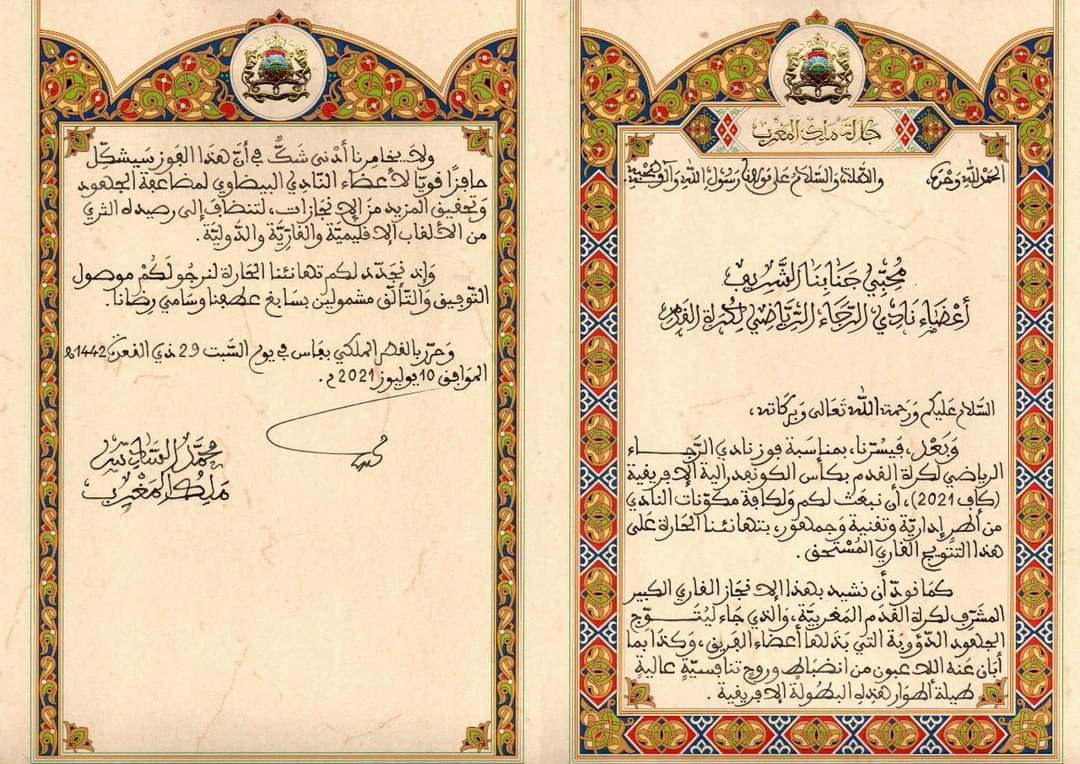 جلالة ملك المغرب
الحمد لله وحده، والصلاة والسلام على مولانا رسول الله وآله وصحبه.
محبي جنابنا الشريف
أعضاء نادي الرجاء الرياضي لكرة القدم
السلام عليكم ورحمة الله تعالى وبركاته،
وبعد، فيسرنا، بمناسبة فوز نادي الرجاء
الرياضي لكرة القدم بكأس الكونفدرالية الإفريقية
(كاف 2021)، أن نبعث لكم ولكافة مكونات النادي
من أطر إدارية وتقنية وجمهور، بتهانئنا الحارة على
هذا التتويج القاري المستحق.
كما نود أن نشيد بهذا الإنجاز القاري الكبير
المشرف لكرة القدم المغربية، والذي جاء ليتوج
الجهود الدؤوبة التي بذلها أعضاء الفريق، وكذا بما
أبان عنه اللاعبون من انضباط وروح تنافسية عالية
طيلة أطوار هذه البطولة الإفريقية.
ولا يخامرنا أدنى شك في أن هذا الفوز سيشكل
حافزا قويا لأعضاء النادي البيضاوي لمضاعفة الجهود
وتحقيق المزيد من الإنجازات، لتنضاف إلى رصيده الثري
من الألقاب الإقليمية والقارية والدولية.
وإذ نجدد لكم تهانئنا الحارة لنرجو لكم موصول
التوفيق والتألق مشمولين بسابغ عطفنا وسامي رضانا.
وحرر بالقصر الملكي بفاس في يوم السبت 29 ذي القعدة 1442ه
الموافق 10 يوليوز 2021 م.
محمد السادس
ملك المغرب